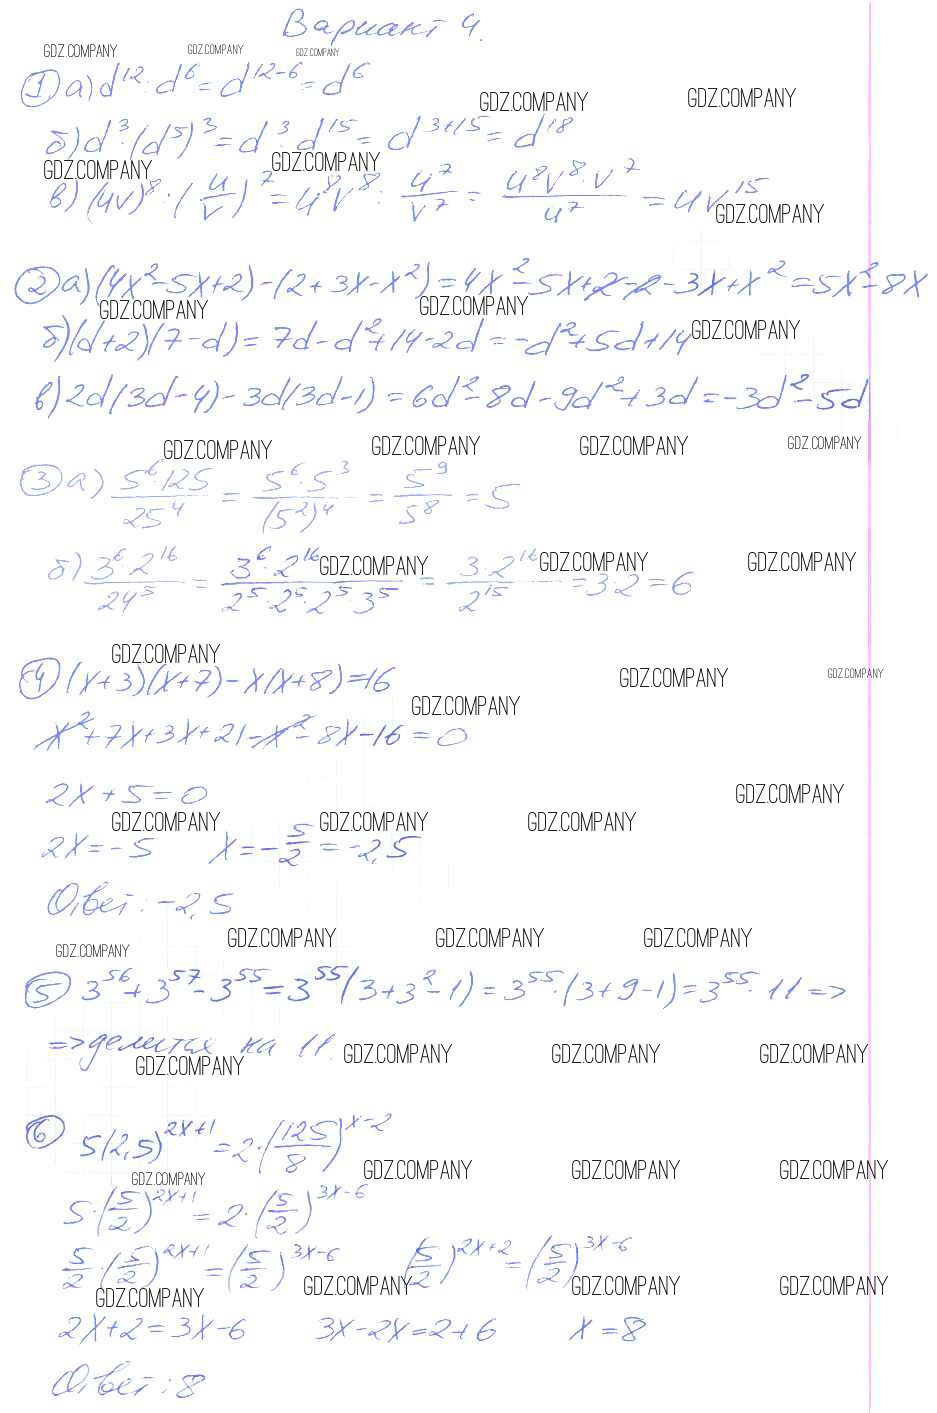 Вариант 4.
GDZ.COMPANY GDZ.COMPANY GDZ.COMPANY
① а) d¹² : d⁶ = d¹²⁻⁶ = d⁶
GDZ.COMPANY GDZ.COMPANY
б) d³·(d⁵)³ = d³·d¹⁵ = d³⁺¹⁵ = d¹⁸
GDZ.COMPANY GDZ.COMPANY
в) (uv)⁸ : (u/v)⁷ = u⁸v⁸ : u⁷/v⁷ = u⁸v⁸·v⁷/u⁷ = uv¹⁵
GDZ.COMPANY
② а) (4x²-5x+2)-(2+3x-x²)=4x²-5x+2-2-3x+x²=5x²-8x
GDZ.COMPANY GDZ.COMPANY
б) (d+2)(7-d)=7d-d²+14-2d=-d²+5d+14
GDZ.COMPANY
в) 2d(3d-4)-3d(3d-1)=6d²-8d-9d²+3d=-3d²-5d
GDZ.COMPANY GDZ.COMPANY GDZ.COMPANY GDZ.COMPANY
③ а) 5⁶·125/25⁴ = 5⁶·5³/(5²)⁴ = 5⁹/5⁸ = 5
б) 3⁶·2¹⁶/24⁵ = 3⁶·2¹⁶/2⁵·2⁵·2⁵·3⁵ = 3·2¹⁶/2¹⁵ = 3·2 = 6
GDZ.COMPANY GDZ.COMPANY GDZ.COMPANY
GDZ.COMPANY
④ (x+3)(x+7)-x(x+8)=16
GDZ.COMPANY GDZ.COMPANY
GDZ.COMPANY
x²+7x+3x+21-x²-8x-16=0
2x+5=0
GDZ.COMPANY
GDZ.COMPANY GDZ.COMPANY GDZ.COMPANY
2x=-5 x=-5/2=-2,5
Ответ: -2,5
GDZ.COMPANY GDZ.COMPANY GDZ.COMPANY GDZ.COMPANY
⑤ 3⁵⁶+3⁵⁷-3⁵⁵=3⁵⁵(3+3²-1)=3⁵⁵·(3+9-1)=3⁵⁵·11=>
=> делится на 11.
GDZ.COMPANY GDZ.COMPANY GDZ.COMPANY GDZ.COMPANY
⑥ 5(2,5)²ˣ⁺¹=2·(125/8)ˣ⁻²
GDZ.COMPANY GDZ.COMPANY GDZ.COMPANY GDZ.COMPANY
5·(5/2)²ˣ⁺¹=2·(5/2)³ˣ⁻⁶
5/2·(5/2)²ˣ⁺¹=(5/2)³ˣ⁻⁶ (5/2)²ˣ⁺²=(5/2)³ˣ⁻⁶
GDZ.COMPANY GDZ.COMPANY GDZ.COMPANY GDZ.COMPANY
2x+2=3x-6 3x-2x=2+6 x=8
Ответ: 8